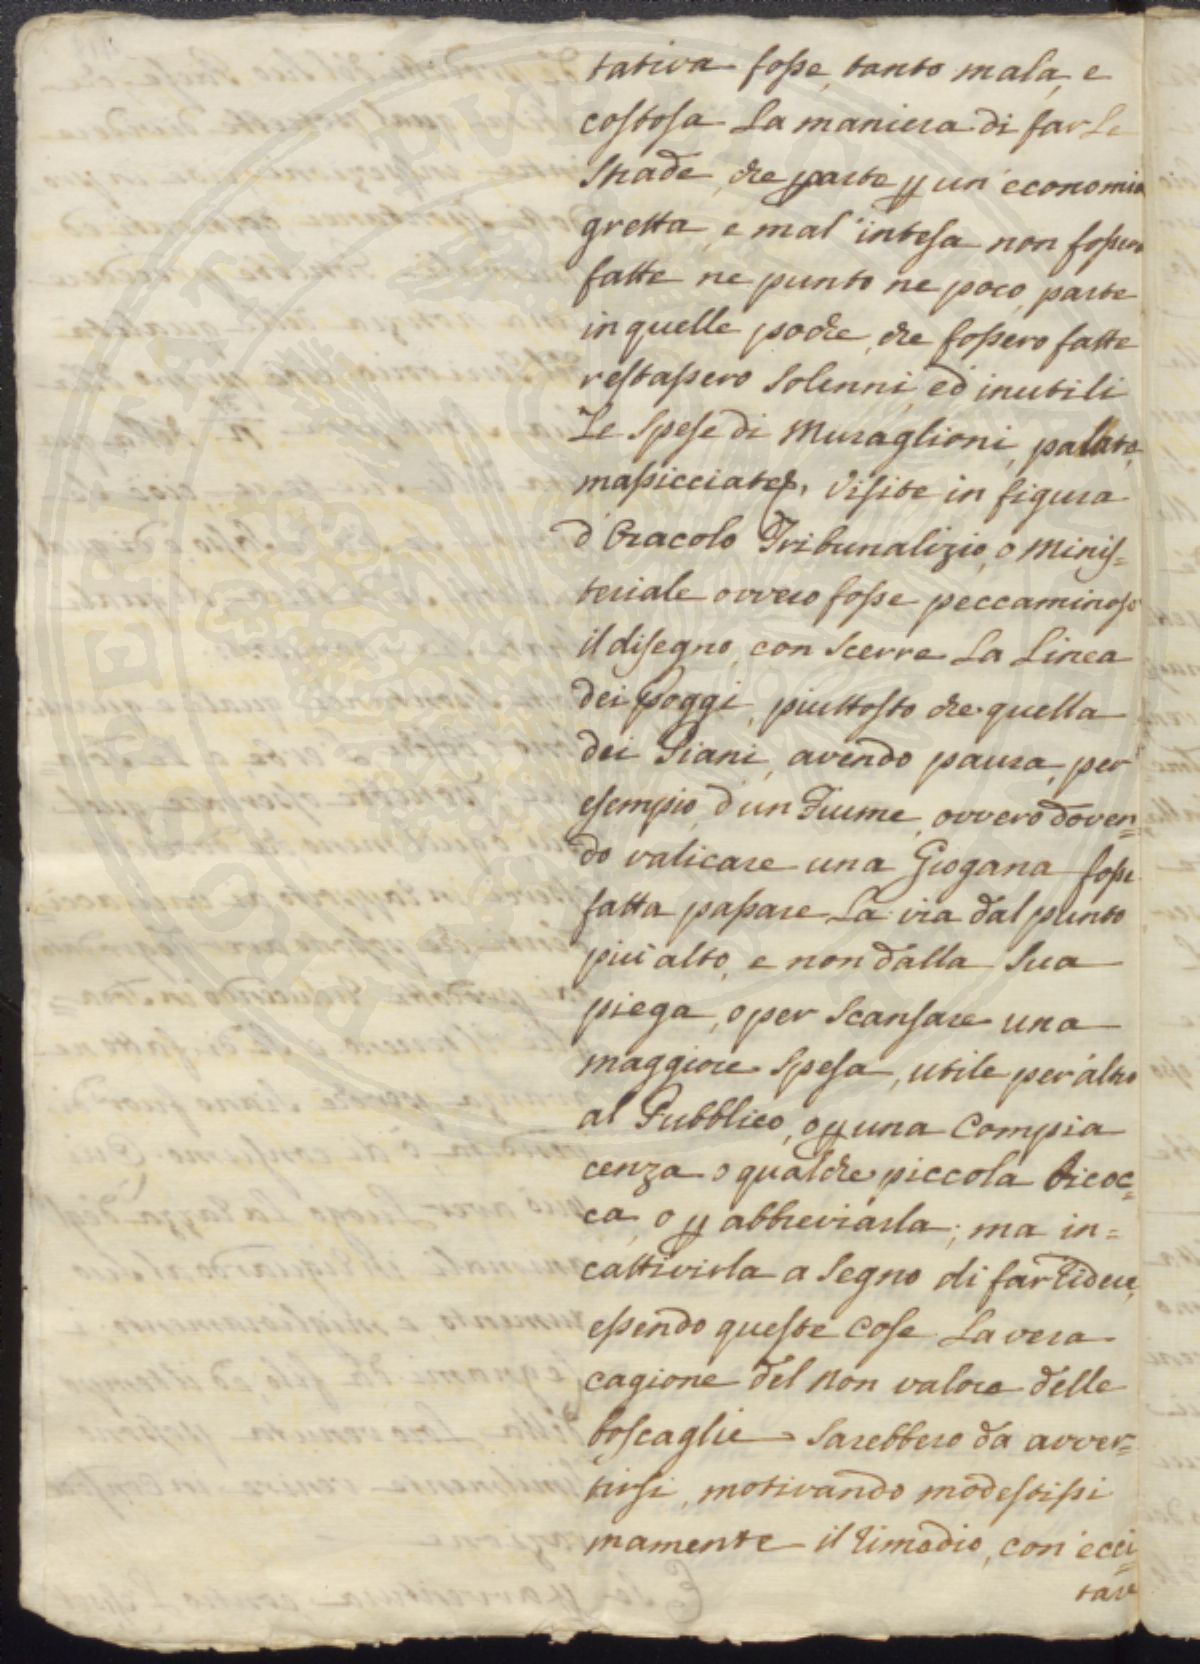 tativa fosse, tanto mala, e
costosa La maniera di far Le
Strade, che parte ꝑ un' economia
gretta, e mal' intesa non fossero
fatte ne punto ne poco, parte
in quelle poche, che fossero fatte
restassero Solenni, ed inutili
Le Spese di Muraglioni, palate,
massicciate, Visite in figura
d'Oracolo Tribunalizio, o Minis=
teriale ovvero fosse peccaminoso
il disegno, con Scerre La Linea
dei Poggi, piuttosto che quella
dei Piani, avendo paura, per
esempio, d'un Fiume, ovvero doven=
do valicare una Giogana fosse
fatta passare La via dal punto
più alto, e non dalla Sua
piega, o per Scansare una
maggiore Spesa, utile per altro
al Pubblico, o ꝑ una Compia
cenza o qualche piccola Bicoc=
ca, o ꝑ abbreviarla; ma in=
cattivirla a Segno di far ridere,
essendo queste Cose La vera
cagione del non valore delle
boscaglie Sarebbero da avver=
tirsi, motivando modestissi
mamente il rimedio, con ecci=
tare